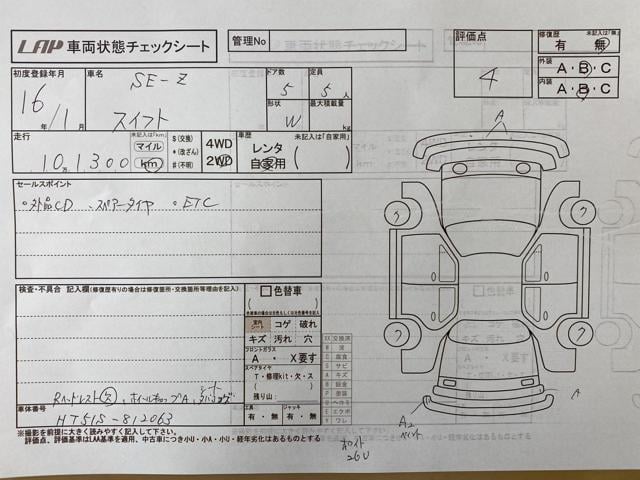 LAP 車両状態チェックシート
管理No
評価点
4
修復歴 未記入は「無」
有 ・ 無
外装 A・B・C
内装 A・B・C
初度登録年月
16年/1月
車名
SE-Z
スイフト
ドア数 5
定員 5人
形状 W
最大積載量 kg
走行 未記入は「km」
10万1,300
マイル
km
$(交換)
*(改ざん)
#(不明)
4WD
2WD
車歴 未記入は「自家用」
レンタ
自家用
セールスポイント
・外品CD 、スペアータイヤ ・ETC
検査・不具合 記入欄(修復歴有りの場合は修復箇所・交換箇所等理由を記入)
色替車
室内シート
コゲ 破れ
キズ 汚れ 穴
フロントガラス
A ・ X要す
スペアタイヤ
T・修理kit・欠・ス
残り山:
工具 有・無
ジャッキ 有・無
XX 交換済
W 波
C 腐食
S サビ
A キズ
B 鈑金
P 塗装
U ヘコミ
E エクボ
Y ワレ
Rヘッドレスト欠 、ホイールキャップA 、
車体番号
HT51S-812063
※撮影を前提に大きく読みやすく記入して下さい。
評価点、評価基準はLAA基準を適用、中古車につき小U・小A・小U・経年劣化はあるものとする
A
A
A2
ペイント
ホワイト
26U